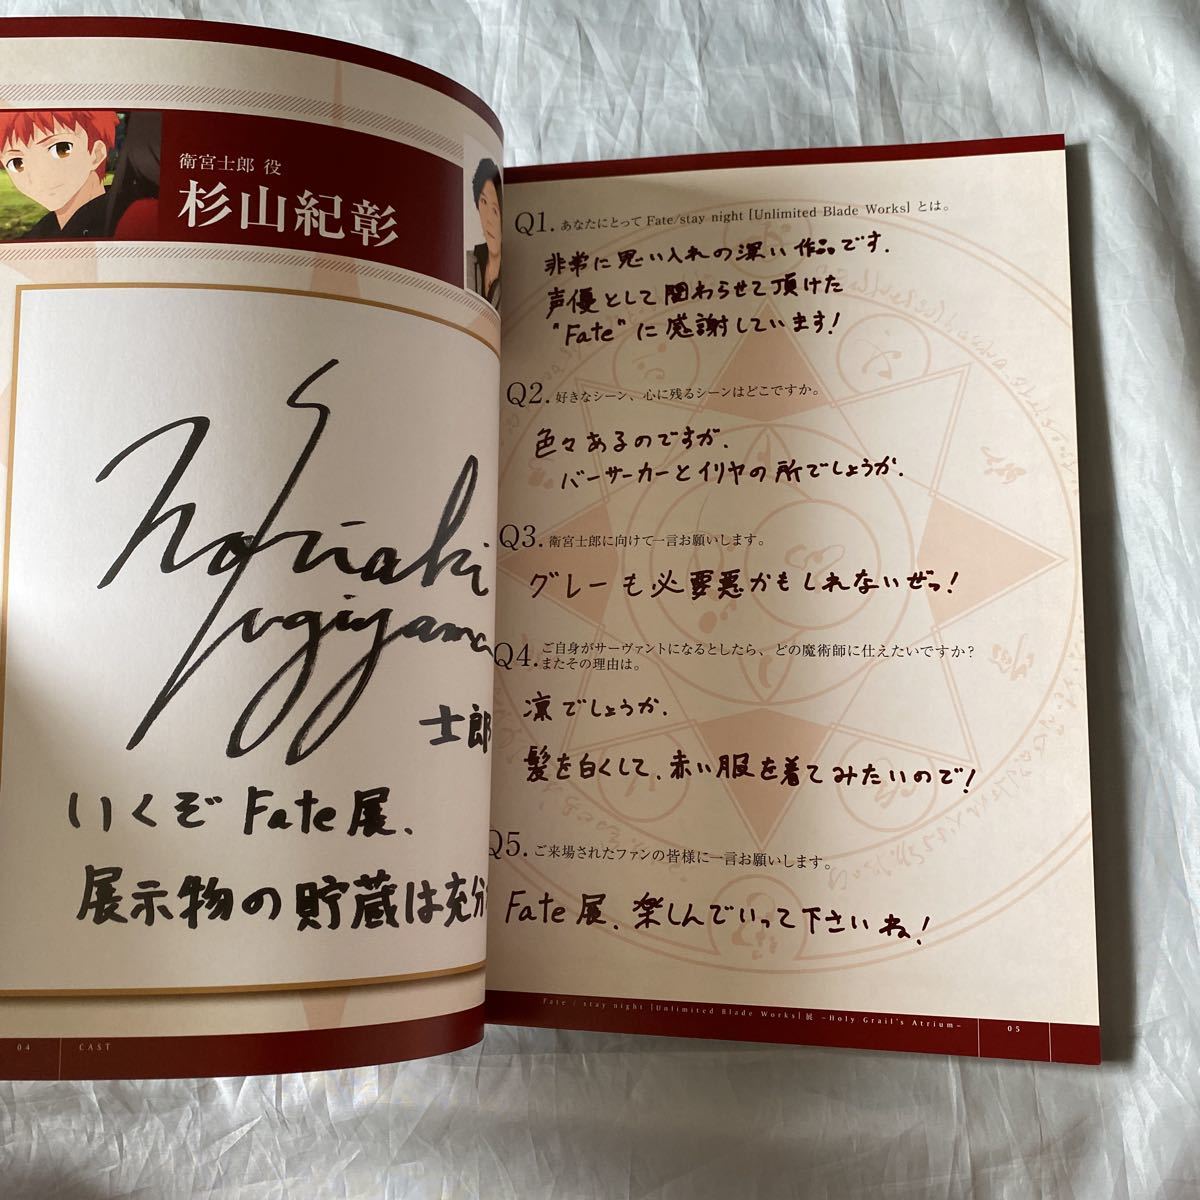 衛宮士郎 役
杉山紀彰
Noriaki
Sugiyama
士郎
いくぞ Fate展、
展示物の貯蔵は充分
04 CAST
Q1. あなたにとって Fate/stay night [Unlimited Blade Works] とは。
非常に思い入れの深い作品です.
声優として関わらせて頂けた
"Fate"に感謝しています!
Q2. 好きなシーン、心に残るシーンはどこですか。
色々あるのですが、
バーサーカーとイリヤの所でしょうか.
Q3. 衛宮士郎に向けて一言お願いします。
グレーも必要悪かもしれないぜっ!
Q4. ご自身がサーヴァントになるとしたら、どの魔術師に仕えたいですか?
またその理由は。
凛でしょうか.
髪を白くして、赤い服を着てみたいので!
Q5. ご来場されたファンの皆様に一言お願いします。
Fate展、楽しんでいって下さいね!
Fate / stay night [Unlimited Blade Works] 展 -Holy Grail's Atrium- 05